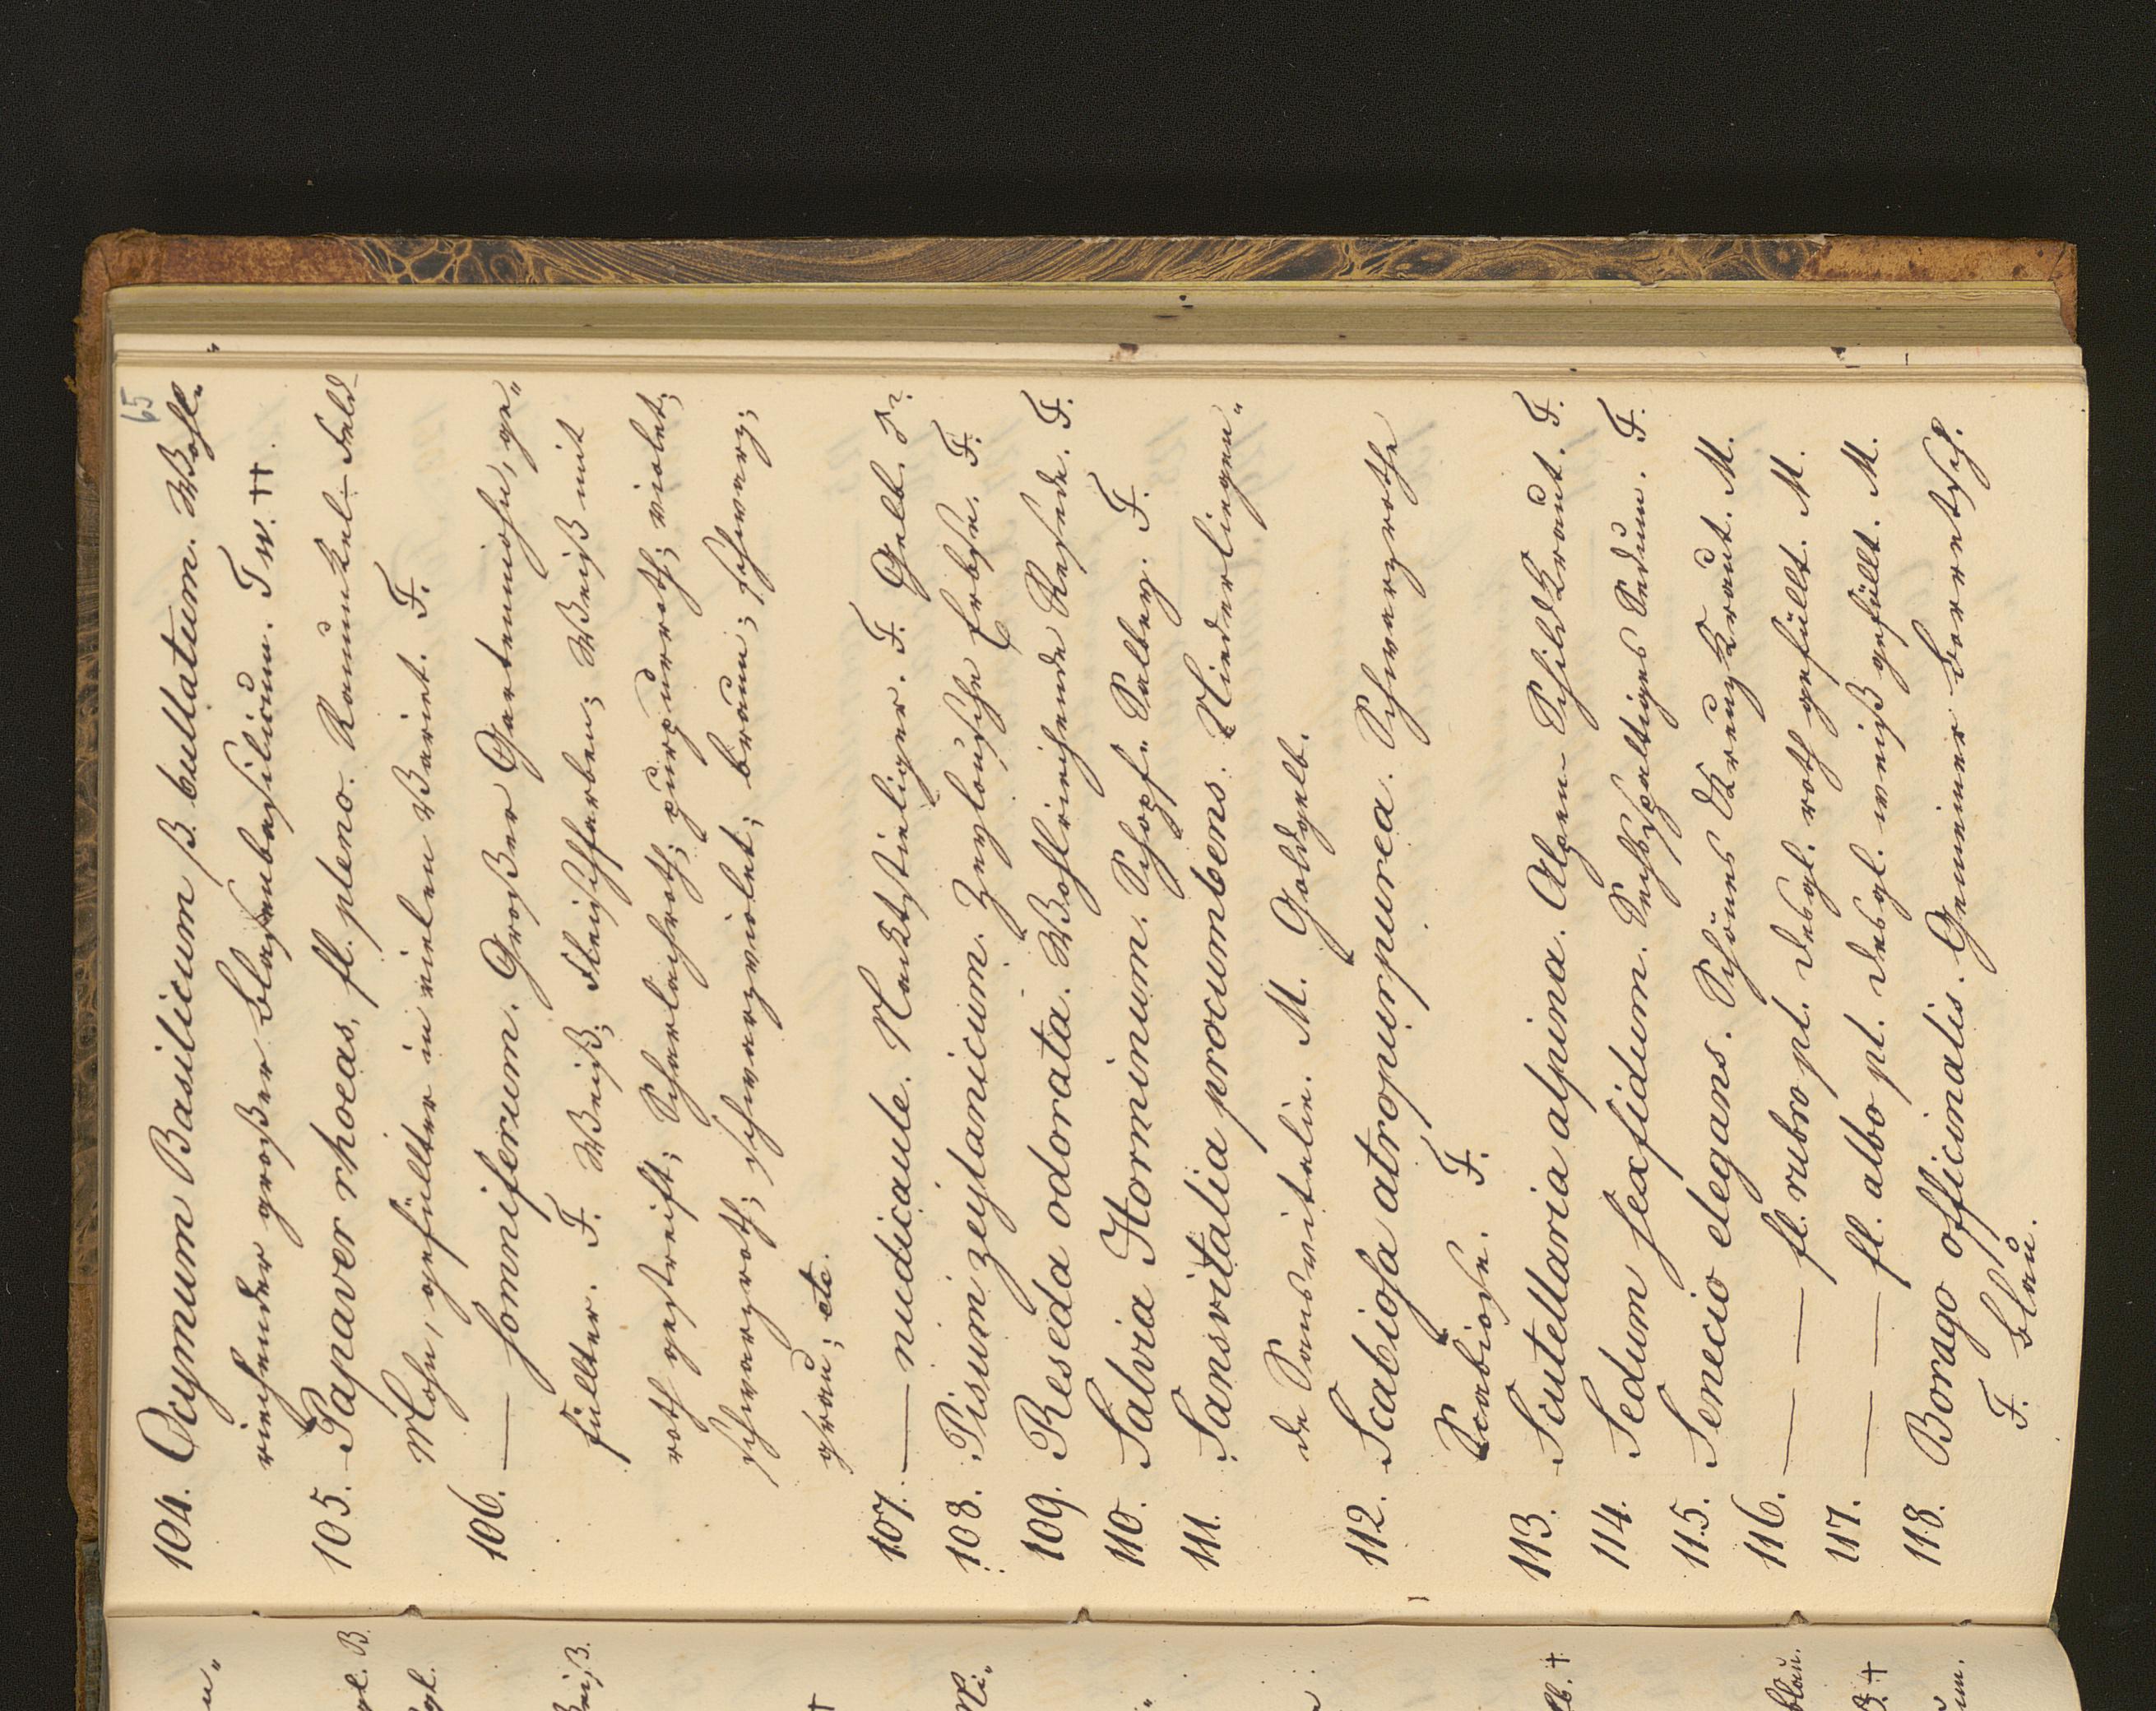 65
104. Ocymum Basilicum β. bullatum. Wohl-
riechender großer Blasenbasilicum. Tw. ††.
105. Papaver rhoeas, fl. pleno. Ranunkel-Feld-
Mohn, gefüllter in vielen Variet. F.
106. — somniferum. Großer Gartenmohn, ge„
füllter. F. Weiß; fleischfarben; Weiß mit
roth gestreift; Scharlachroth; purpurroth; violet;
schwarzroth; schwarzviolet; braun; schwarz;
grau; etc.
107. — nudicaule. Nacktstieliger. F. Gelb.
108. Pisum zeylanicum. Zeylonische Erbse. F.
109. Reseda odorata. Wohlriechende Resede. F.
110. Salvia Horminum. Schopf-Salbey. F.
111. Sansvitalia procumbens. Niederliegen„
de Sansvitalie. M. Goldgelb.
112. Scabiosa atropurpurea. Schwarzrothe
Scabiose. F.
113. Scutellaria alpina. Alpen-Schildkraut. F.
114. Sedum sexfidum. Sechsspaltiges Sedum. F.
115. Senecio elegans. Schönes Kreuzkraut. M.
116. — — fl. rubro pl. desgl. roth gefüllt. M.
117. — — fl. albo pl. desgl. weiß gefüllt. M.
118. Borago officinalis. Gemeiner Boretsch.
F. Blau.
gl. B.
gl.
Weiß.
lb. †
blau.